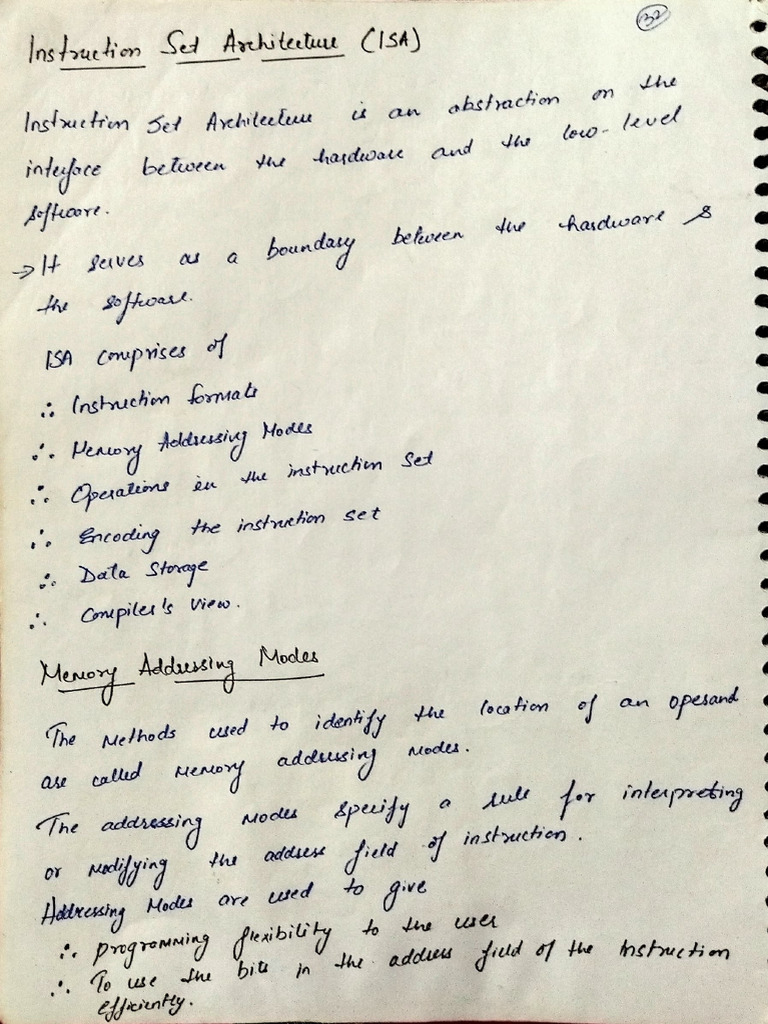 32
Instruction Set Architecture (ISA)
Instruction Set Architecture is an abstraction on the
interface between the hardware and the low-level
software.
→ It serves as a boundary between the hardware &
the software.
ISA comprises of
∴ Instruction formats
∴ Memory Addressing Modes
∴ Operations in the instruction set
∴ Encoding the instruction set
∴ Data Storage
∴ Compiler's view.
Memory Addressing Modes
The methods used to identify the location of an operand
are called memory addressing modes.
The addressing modes specify a rule for interpreting
or modifying the address field of instruction.
Addressing Modes are used to give
∴ programming flexibility to the user
∴ To use the bits in the address field of the Instruction
efficiently.